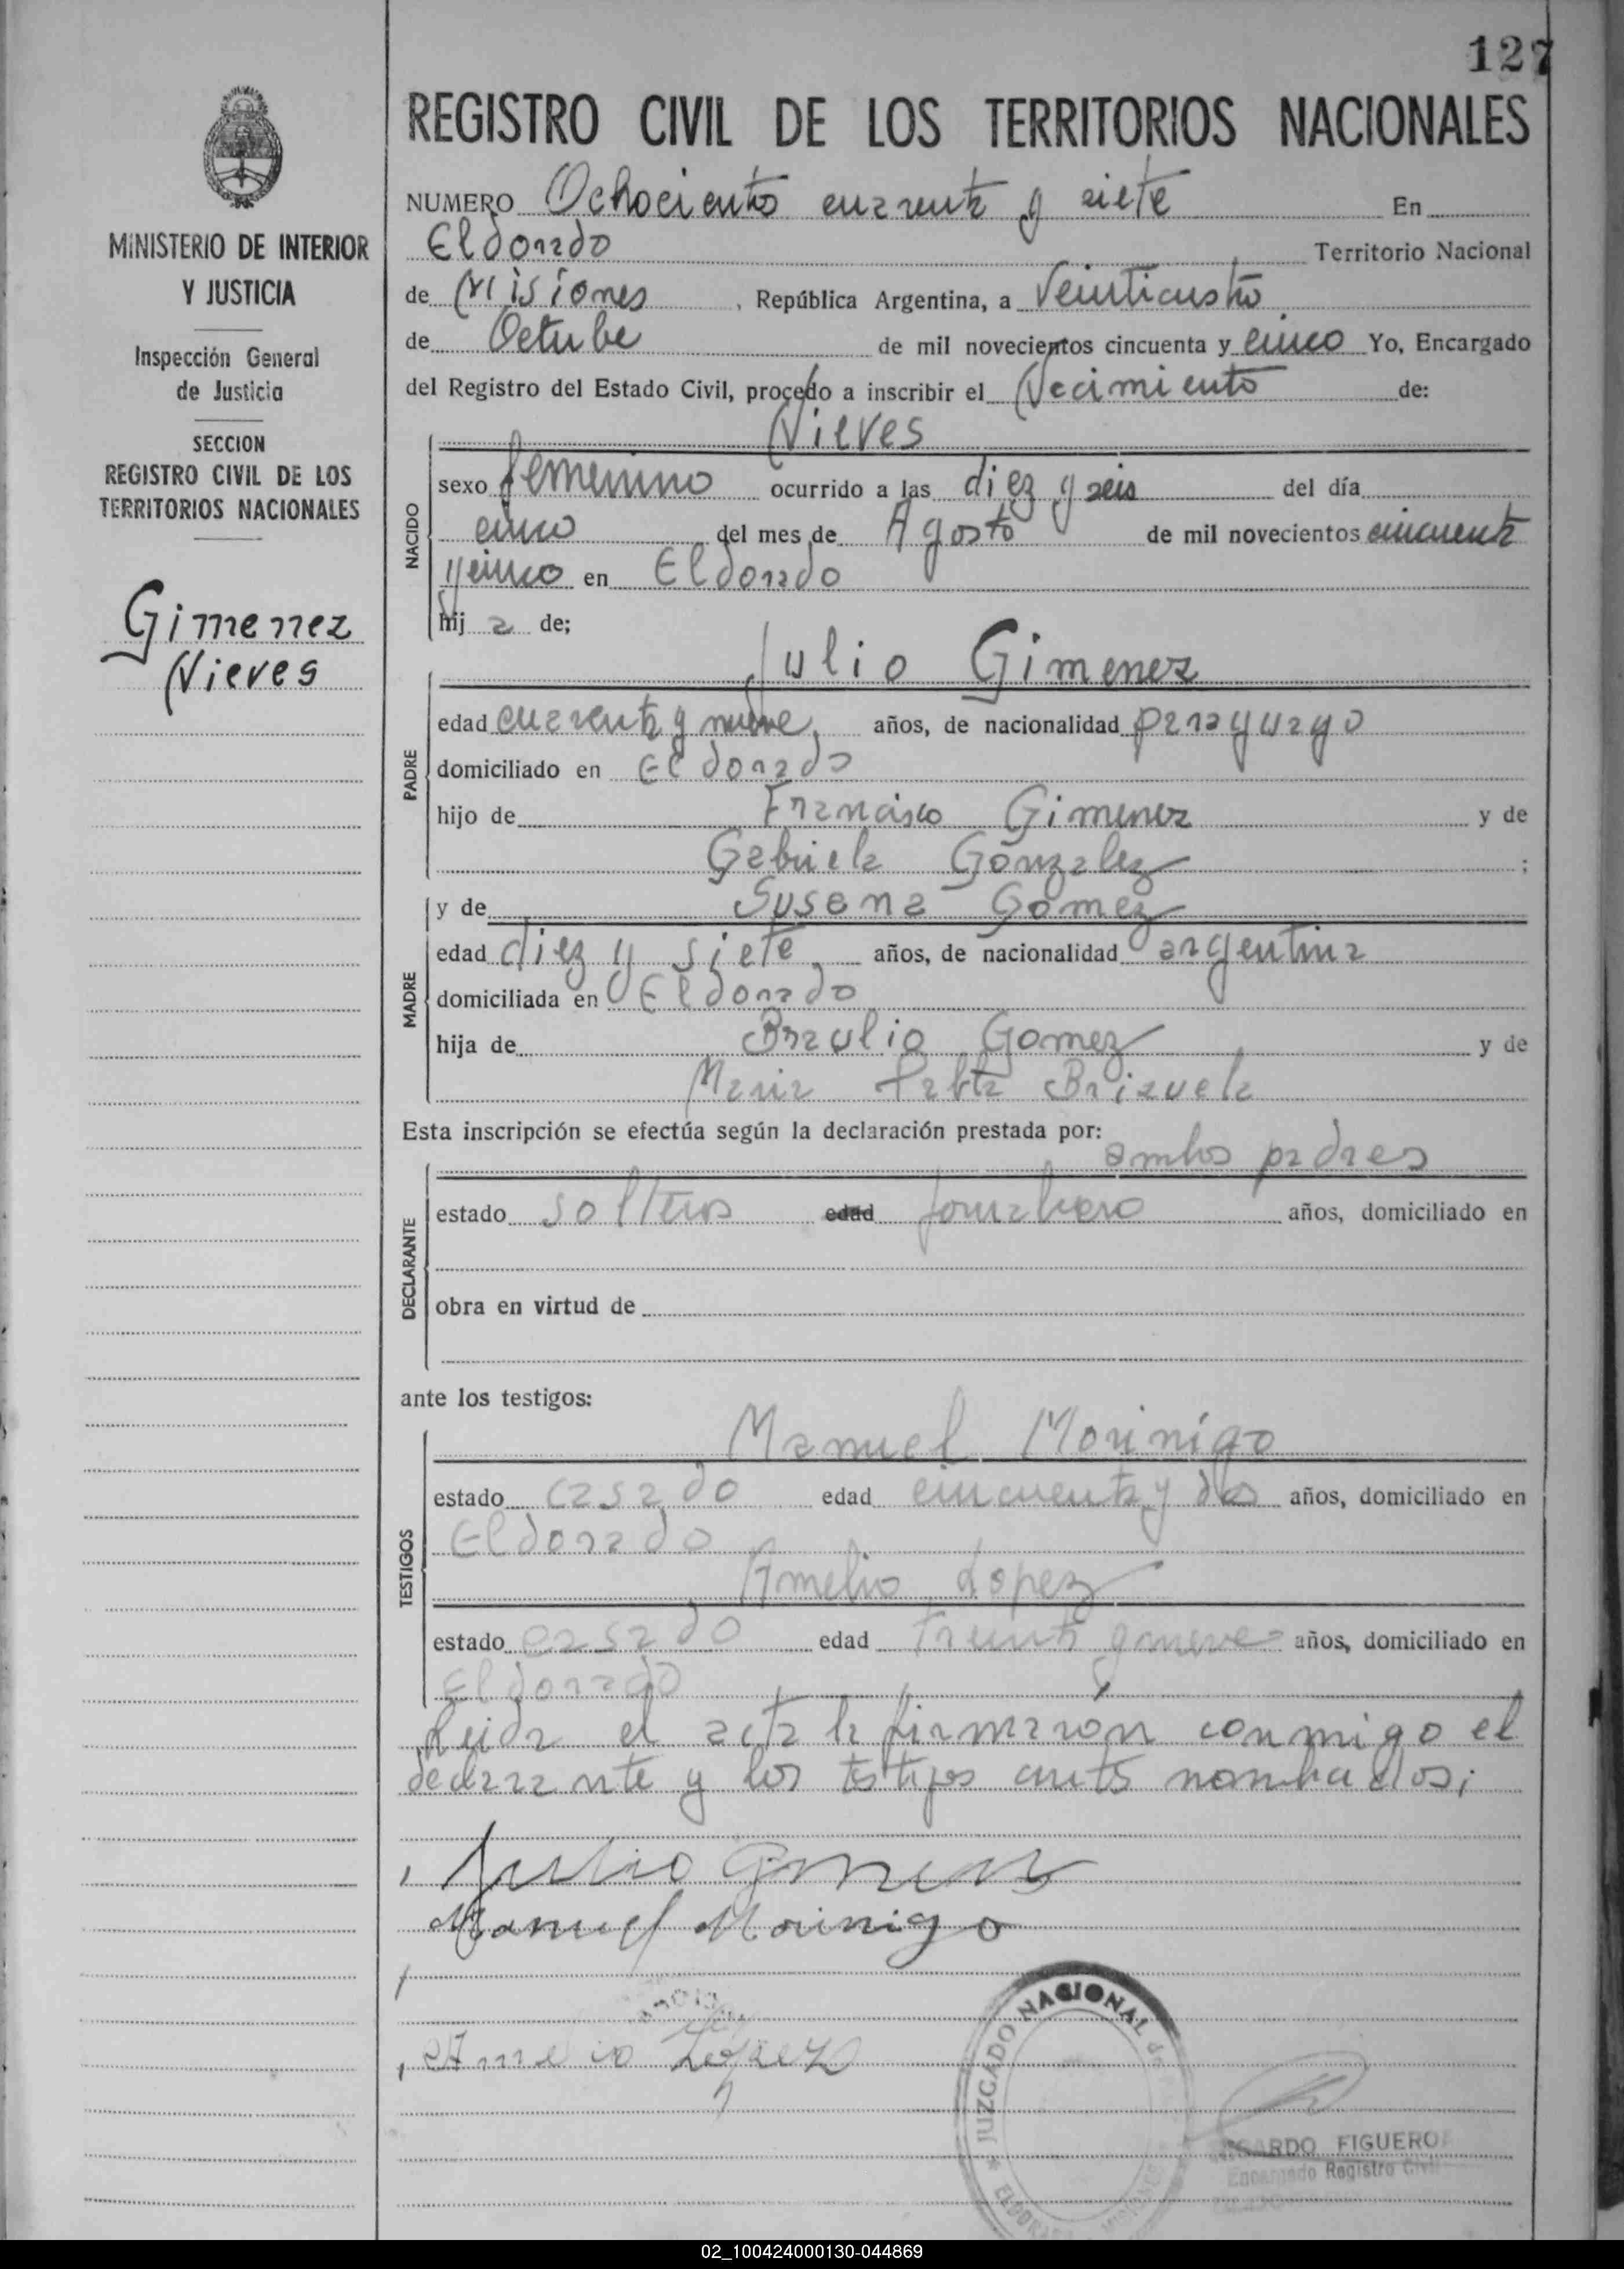 127
REGISTRO CIVIL DE LOS TERRITORIOS NACIONALES
MINISTERIO DE INTERIOR
Y JUSTICIA
Inspección General
de Justicia
SECCION
REGISTRO CIVIL DE LOS
TERRITORIOS NACIONALES
Gimenez
Nieves
NUMERO Ochociento cuarenta y siete En
Eldorado Territorio Nacional
de Misiones, República Argentina, a Veinticuatro
de Octubre de mil novecientos cincuenta y cinco Yo, Encargado
del Registro del Estado Civil, procedo a inscribir el Nacimiento de:
Nieves
NACIDO
sexo femenino ocurrido a las diez y seis del día
cinco del mes de Agosto de mil novecientos cincuenta
y cinco en Eldorado
hij a de;
Julio Gimenez
PADRE
edad cuarenta y nueve, años, de nacionalidad paraguayo
domiciliado en Eldorado
hijo de Francisco Gimenez y de
Gabriela Gonzalez ;
y de Susana Gomez
MADRE
edad diez y siete, años, de nacionalidad argentina
domiciliada en Eldorado
hija de Braulio Gomez y de
Maria Brizuela
Esta inscripción se efectúa según la declaración prestada por:
ambos padres
DECLARANTE
estado solteros edad jornalero años, domiciliado en
obra en virtud de
ante los testigos:
Manuel Morinigo
TESTIGOS
estado casado edad cincuenta y dos años, domiciliado en
Eldorado
Amelio Lopez
estado casado edad treinta y nueve años, domiciliado en
Eldorado
Leida el acta la firmaron conmigo el
declarante y los testigos antes nombrados;
Julio Gimenez
Manuel Morinigo
Amelio Lopez
JUZGADO NACIONAL
ELDORADO MISIONES
FIGUERO
Encargado Registro Civil
02_100424000130-044869